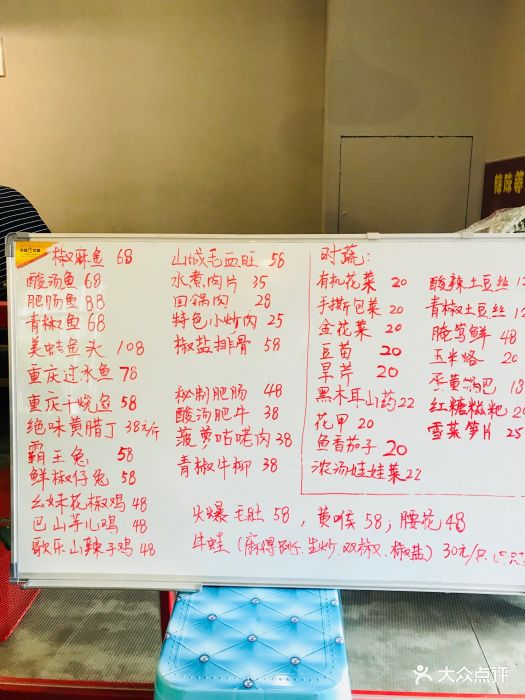 椒麻鱼 68
酸汤鱼 68
肥肠鱼 88
青椒鱼 68
美蛙鱼头 108
重庆过水鱼 78
重庆干烧鱼 58
绝味黄腊丁 38元/斤
霸王兔 58
鲜椒仔兔 58
幺妹花椒鸡 48
巴山芋儿鸡 48
歌乐山辣子鸡 48
山城毛血旺 58
水煮肉片 35
回锅肉 28
特色小炒肉 25
椒盐排骨 58
秘制肥肠 48
酸汤肥牛 38
菠萝咕咾肉 38
青椒牛柳 38
火爆毛肚 58，黄喉 58，腰花 48
牛蛙（麻得跳、生炒、双椒、椒盐）30元/只
时蔬：
有机花菜 20
手撕包菜 20
金花菜 20
豆苗 20
旱芹 20
黑木耳山药 22
花甲 20
鱼香茄子 20
浓汤娃娃菜 22
酸辣土豆丝
青椒土豆丝
腌笃鲜 48
玉米烙 20
蛋黄锅巴 18
红糖糍粑 20
雪菜笋片 25
辣味等
大众点评